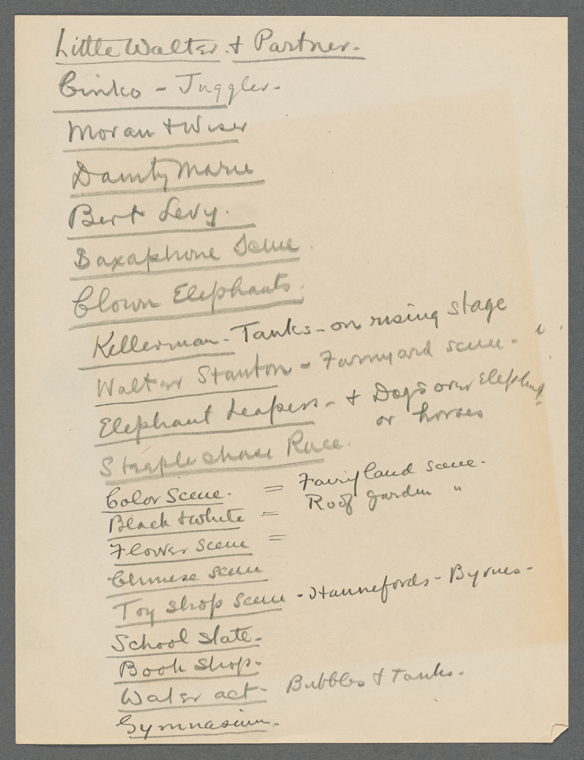 Little Walter & Partner.
Cinko - Juggler.
Moran & Wiser
Dainty Marie
Bert Levy.
Saxaphone Scene.
Clown Elephants.
Kellerman - Tanks - on rising stage
Walter Stanton - Farmyard scene -
Elephant Leapers - & Dogs over Elephants
or horses
Steeplechase Race.
Color Scene. = Fairyland scene.
Black & white = Roof garden "
Flower Scene =
Chinese scene
Toy Shop scene - Hannefords - Byrnes -
School slate.
Book shop.
Water act - Bubbles & Tanks.
Gymnasium.